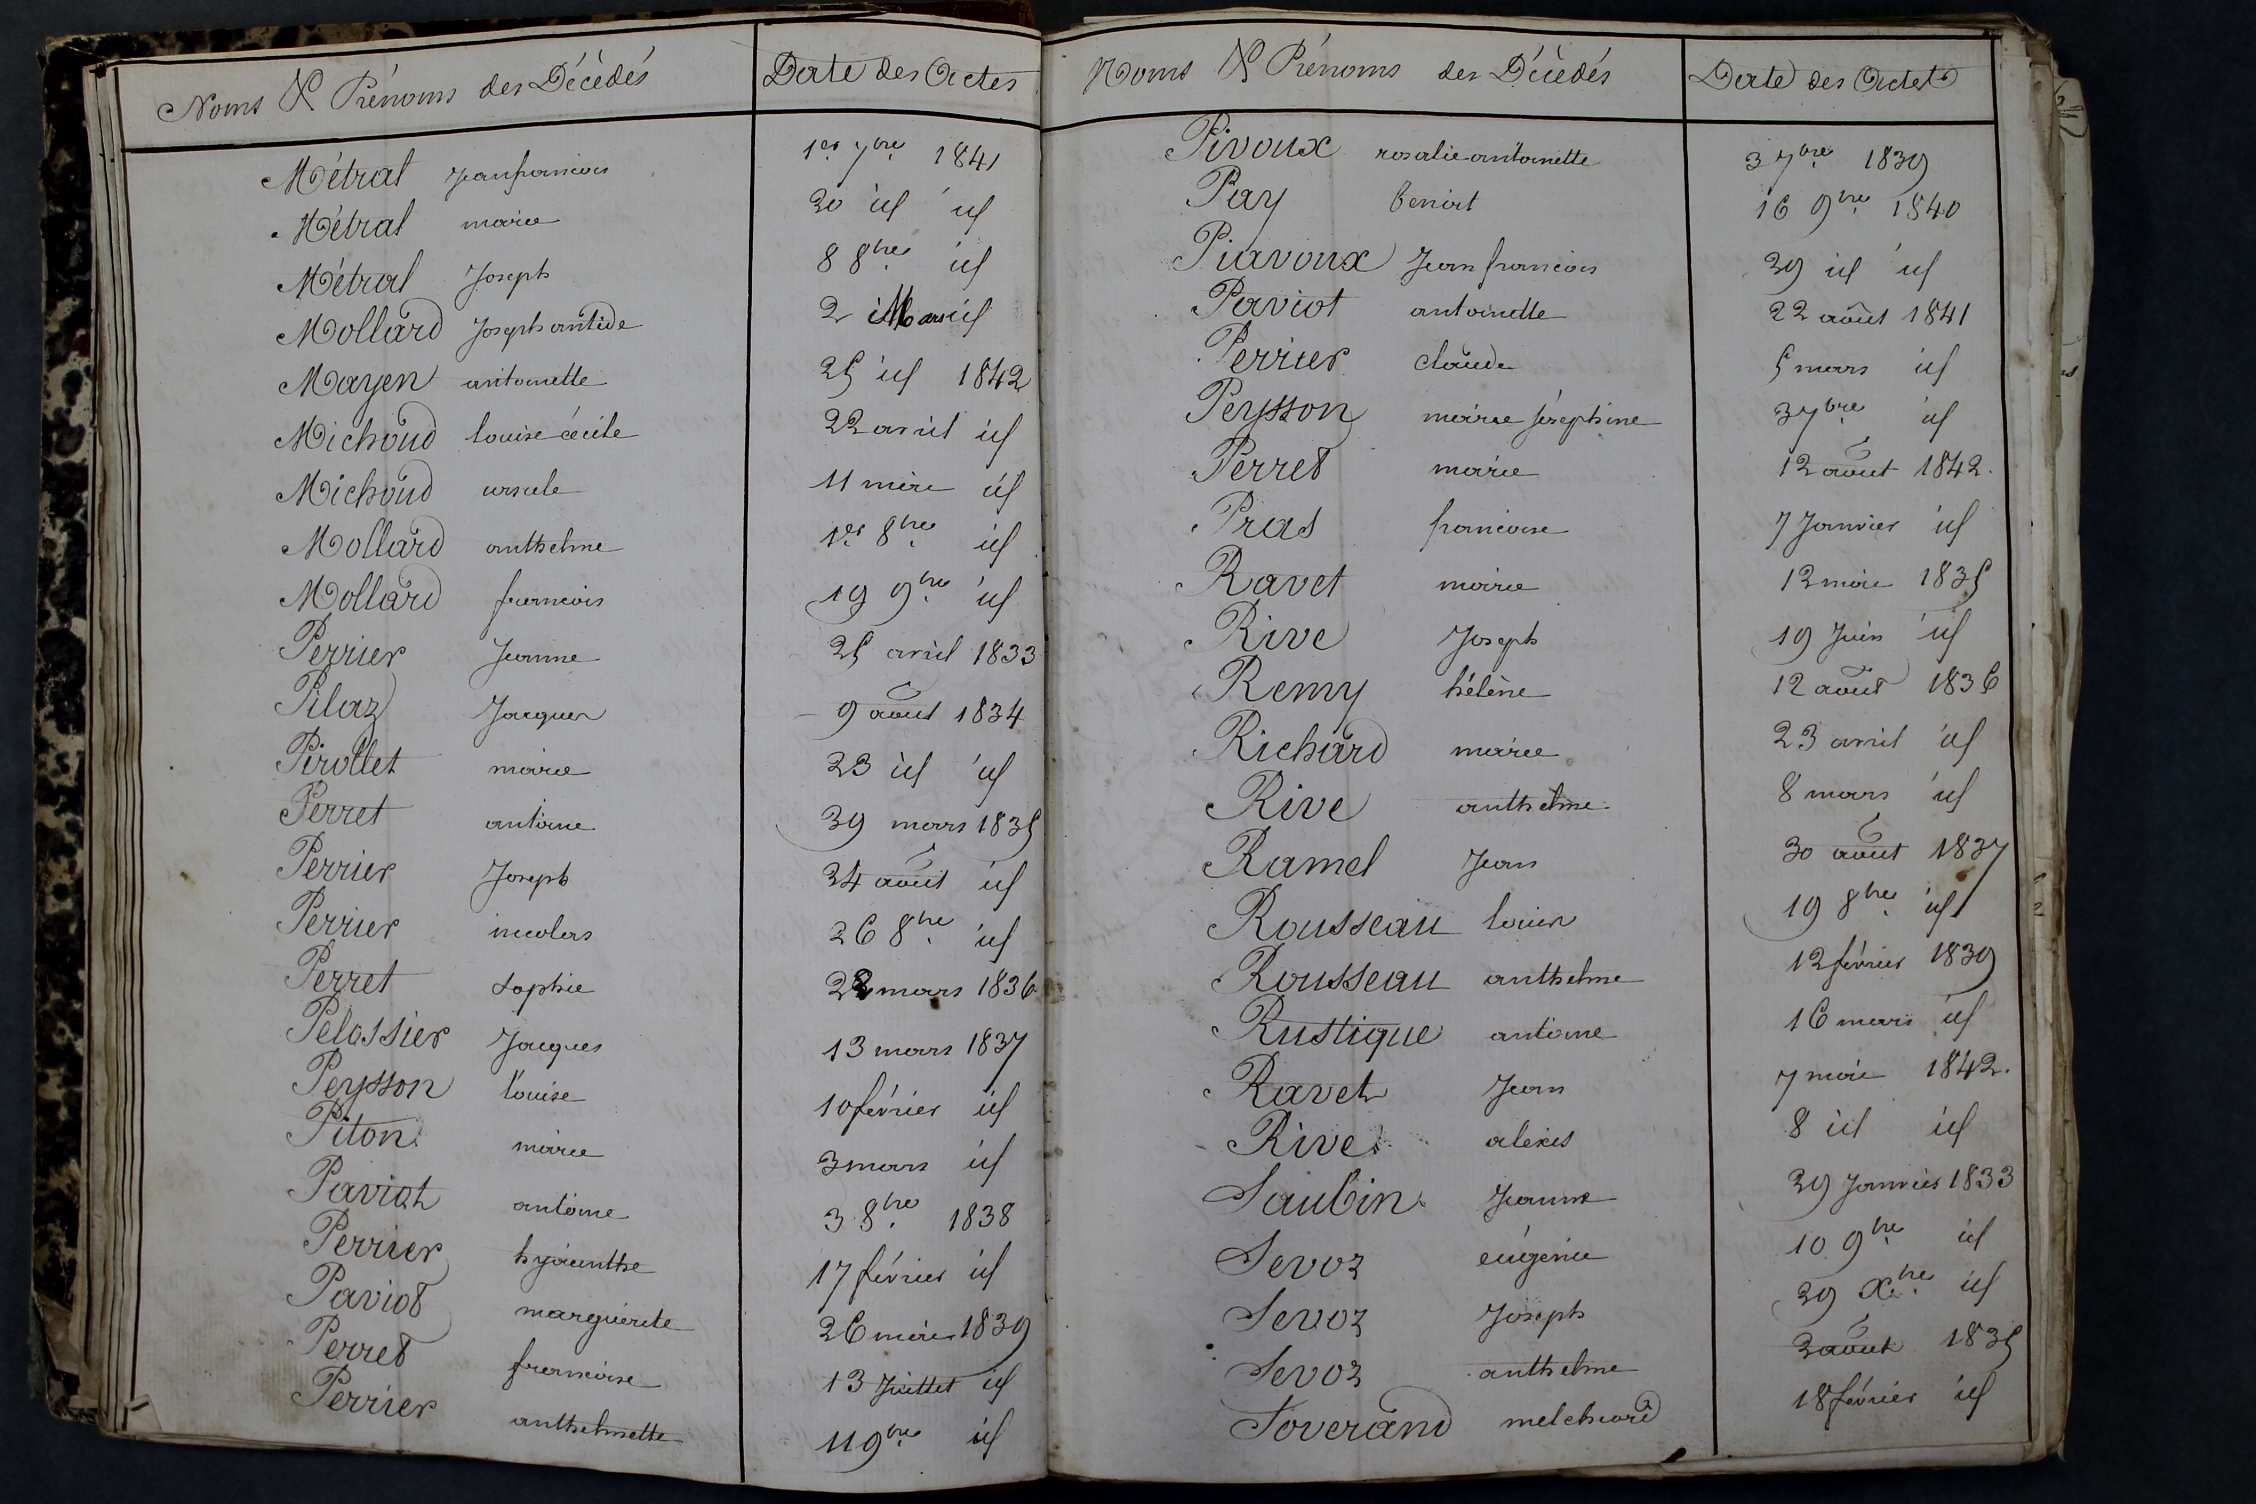 Noms & Prénoms des Décédés Date des Actes
Métral Jean francois 1er 7bre 1841
Métral marie 20 id id
Métral Joseph 8 8bre id
Mollard Joseph antide 2 Mars id
Mayen antoinette 25 id 1842
Michoud louise cécile 22 avril id
Michoud ursule 11 mai id
Mollard anthelme 1er 8bre id
Mollard francois 19 9bre id
Perrier Jeanne 25 avril 1833
Pilaz Jacques 9 août 1834
Pirollet marie 23 id id
Perret antoine 29 mars 1835
Perrier Joseph 24 août id
Perrier nicolas 26 8bre id
Perret sophie 22 mars 1836
Pelossier Jacques 13 mars 1837
Peysson louise 10 février id
Piton marie 3 mars id
Paviot antoine 3 8bre 1838
Perrier hyacinthe 17 février id
Paviot marguerite 26 mai 1839
Perret francoise 13 Juillet id
Perrier anthelmette 11 9bre id
Noms & Prénoms des Décédés Date des Actes
Pivoux rosalie antoinette 3 7bre 1839
Pay benoit 16 9bre 1840
Piavoux Jean francois 29 id id
Paviot antoinette 22 août 1841
Perrier claude 5 mars id
Peysson marie Joséphine 3 7bre id
Perret marie 12 août 1842.
Pras francoise 7 Janvier id
Ravet marie 12 mai 1835
Rive Joseph 19 Juin id
Remy hélène 12 août 1836
Richard marie 23 avril id
Rive anthelme 8 mars id
Ramel Jean 30 août 1837
Rousseau louis 19 8bre id
Rousseau anthelme 12 février 1839
Rustique antoine 16 mars id
Ravet Jean 7 mai 1842.
Rive alexis 8 id id
Saubin Jeanne 29 Janvier 1833
Sevoz eugénie 10 9bre id
Sevoz Joseph 29 Xbre id
Sevoz anthelme 2 août 1835
Soverand melchiord 18 février id